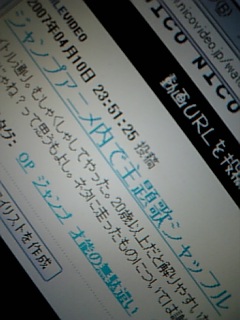 nicovideo.jp/wat
NICO NICO
動画URLを投稿
LEVIDEO
2007年04月10日 23:51:25 投稿
ジャンプアニメ内で主題歌シャッフル
トル通り。むしゃくしゃしてやった。20歳以上だと解りやすい
じゃね？って思うもよし。ネタに走ったものについては
タグ: OP ジャンプ 才能の無駄遣い
イリストを作成